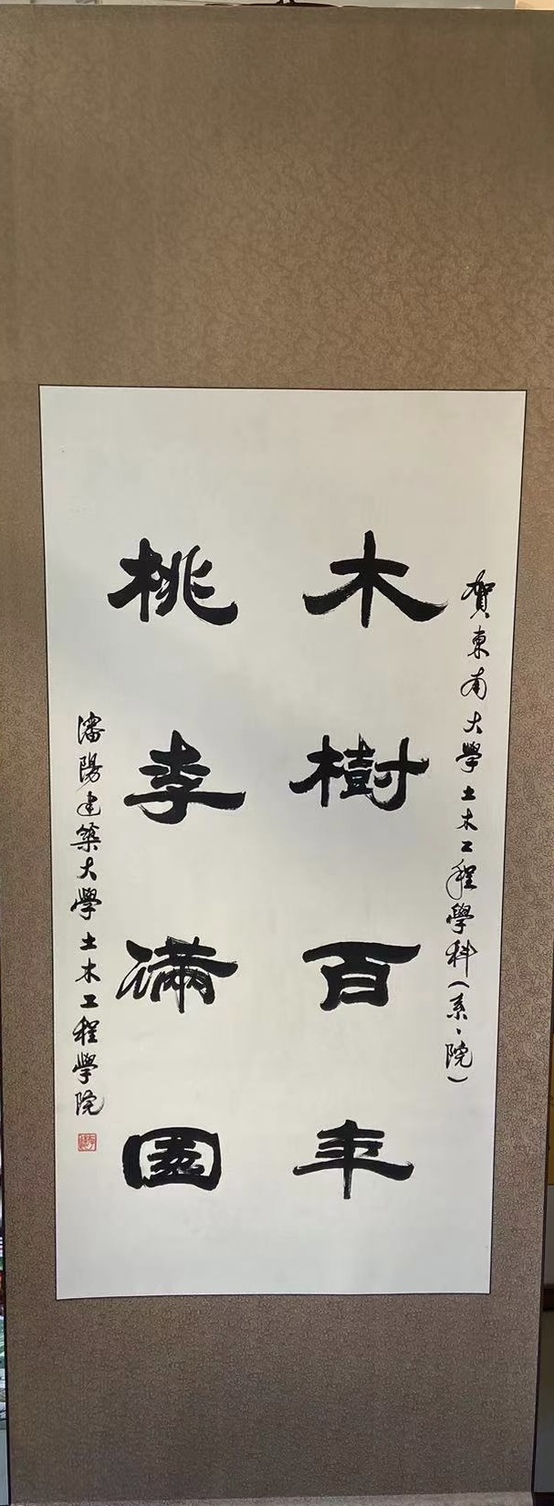 賀東南大學土木工程學科（系、院）
木樹百年
桃李滿園
瀋陽建築大學土木工程學院